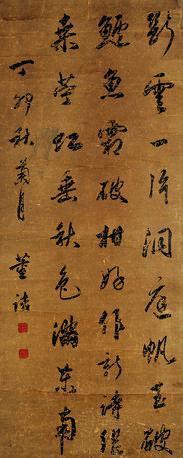 斷雲一片洞庭帆玉破
鱸魚霜破柑好作新詩繼
桑苧虹垂秋色滿東南
丁卯秋菊月 董誥